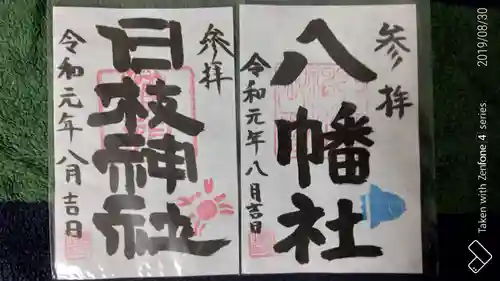 参拝
八幡社
令和元年八月吉日
参拝
日枝神社
令和元年八月吉日
2019/08/30
Taken with Zenfone 4 series